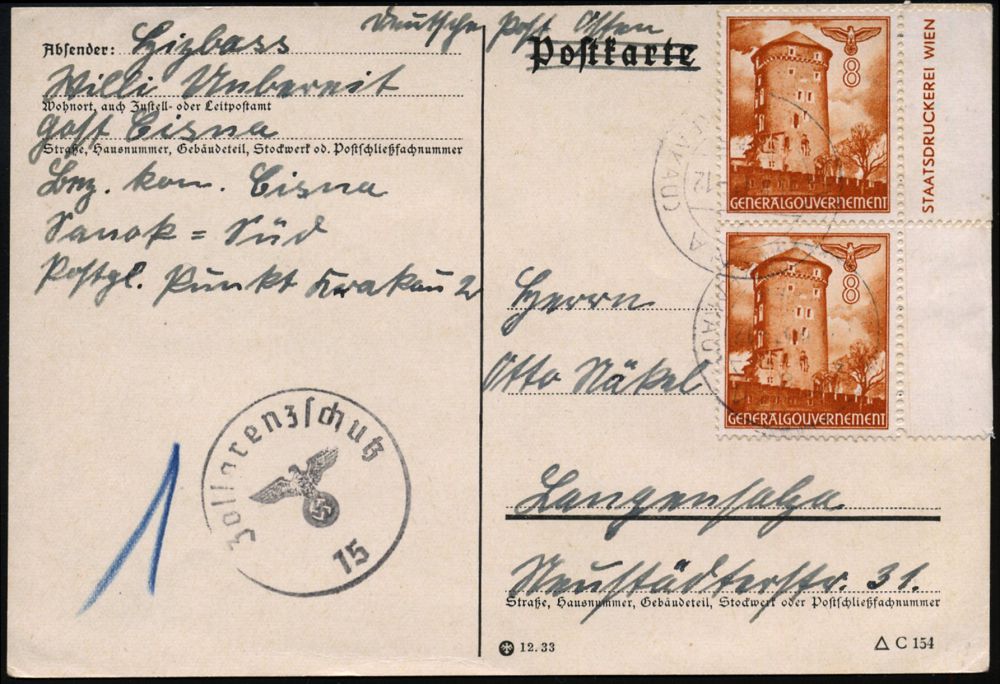 Deutsche Post Osten
Postkarte
Absender: Hizbass
Willi Unbereit
Wohnort, auch Zustell- oder Leitpostamt
Gast Cisna
Straße, Hausnummer, Gebäudeteil, Stockwerk od. Postschließfachnummer
Bez. kom. Cisna
Sanok = Süd
Postgl. Punkt Krakau 2
8
GENERALGOUVERNEMENT
STAATSDRUCKEREI WIEN
8
GENERALGOUVERNEMENT
Herrn
Otto Näkel
Langensalza
Neustädterstr. 31.
Straße, Hausnummer, Gebäudeteil, Stockwerk oder Postschließfachnummer
Zollgrenzschutz
15
1
12.33
C 154